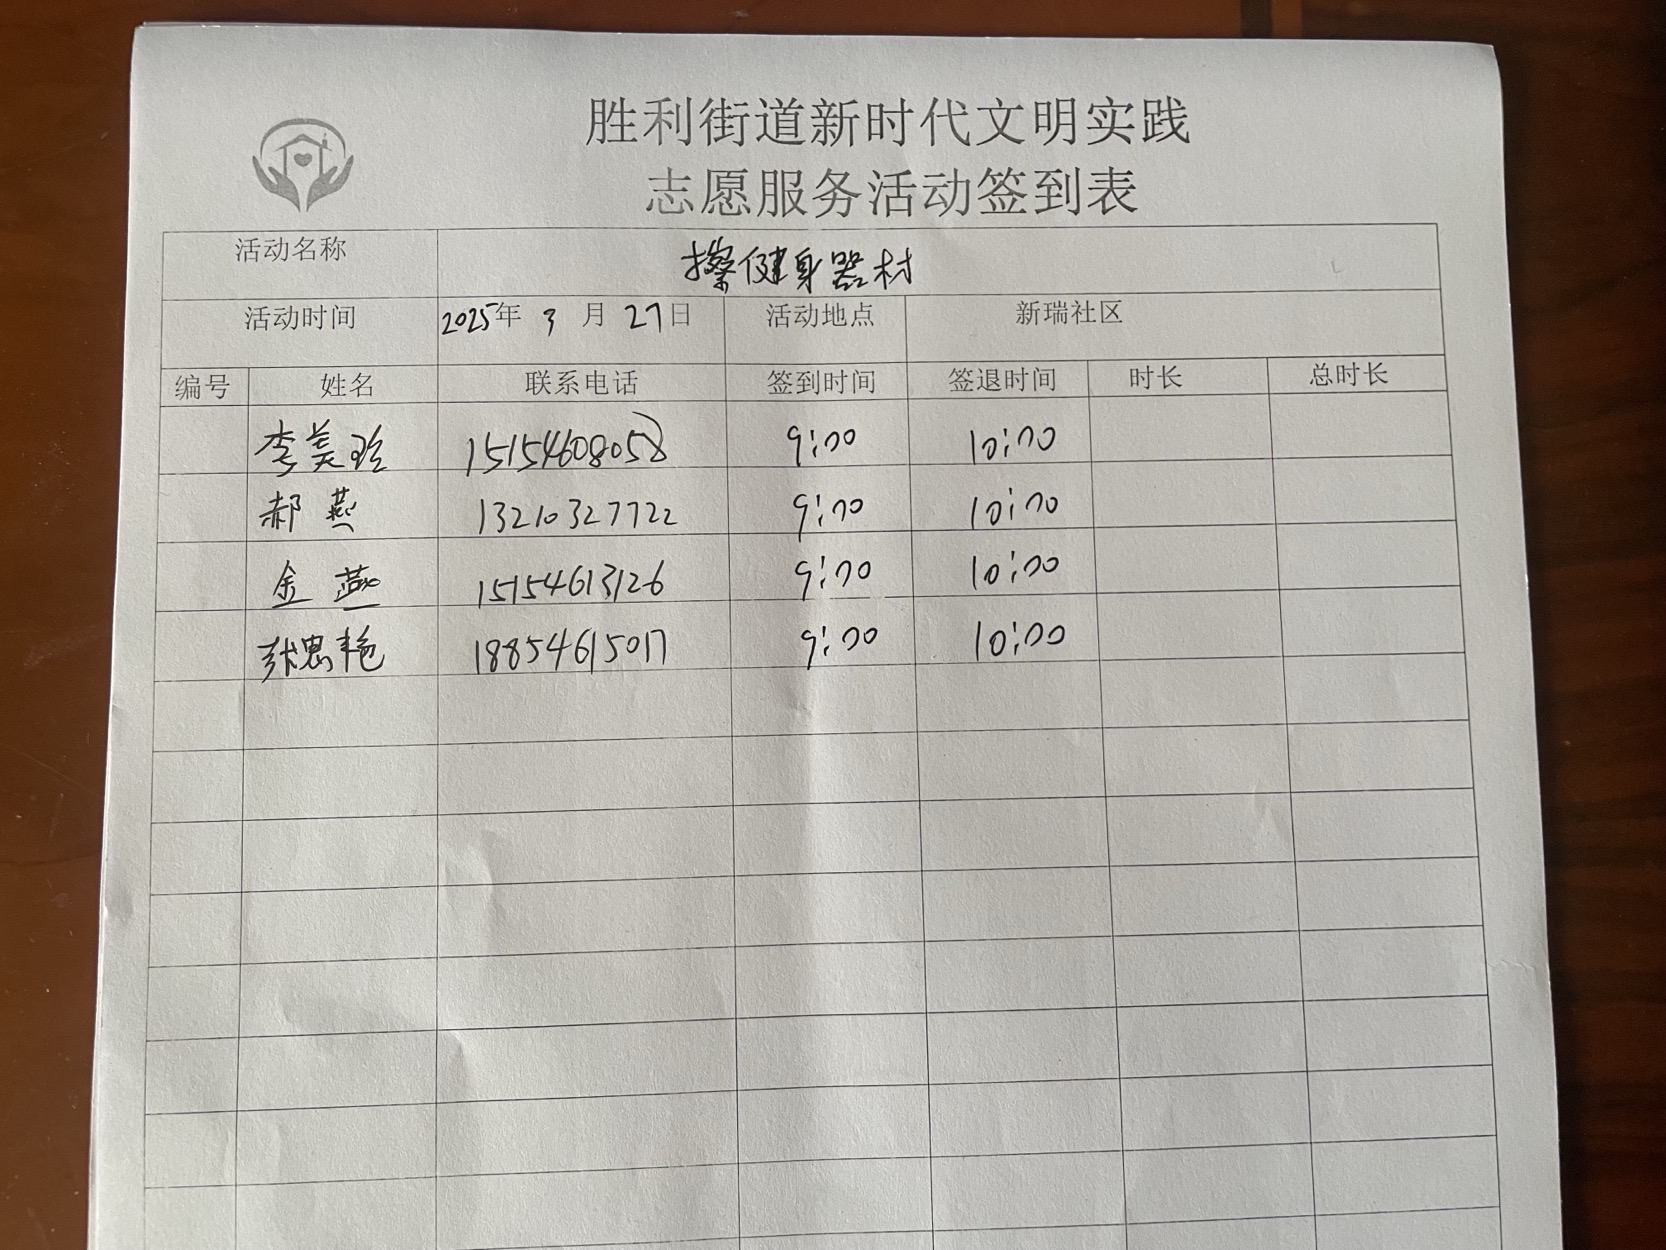 胜利街道新时代文明实践
志愿服务活动签到表
活动名称 擦健身器材
活动时间 2025年 3 月 27日 活动地点 新瑞社区
编号 姓名 联系电话 签到时间 签退时间 时长 总时长
李美玲 15154608058 9:00 10:00
郝燕 13210327722 9:00 10:00
金燕 15154613126 9:00 10:00
张思艳 18854615017 9:00 10:00